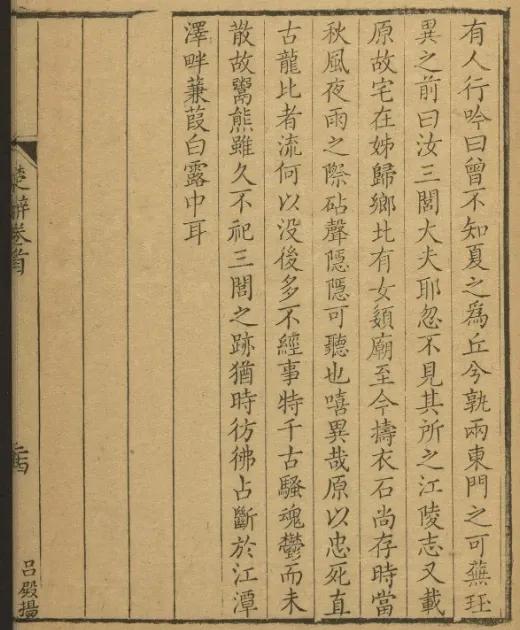 有人行吟曰曾不知夏之為丘兮孰兩東門之可蕪珏
異之前曰汝三閭大夫耶忽不見其所之江陵志又載
原故宅在姊歸鄉北有女嬃廟至今擣衣石尚存時當
秋風夜雨之際砧聲隱隱可聽也嘻異哉原以忠死直
古龍比者流何以没後多不經事特千古騷魂鬱而未
散故鬻熊雖久不祀三閭之跡猶時彷彿占斷於江潭
澤畔蒹葭白露中耳
楚辭卷首
吕殿揚